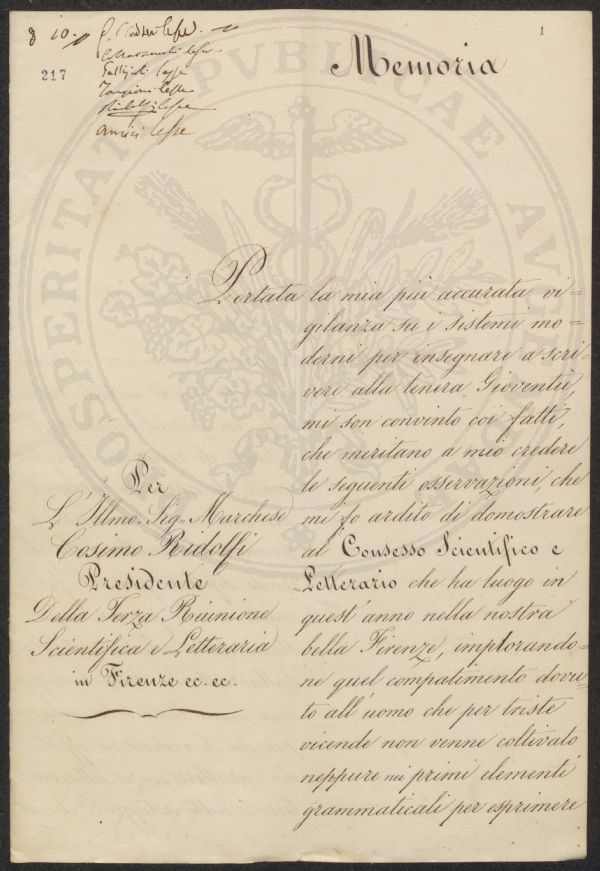 8 10.
217
Targioni lesse
Ridolfi lesse
amici lesse
1
Memoria
Portata la mia più accurata vi=
gilanza su i sistemi mo=
derni per insegnare a scri=
vere alla tenera Gioventù,
mi son convinto coi fatti,
che meritano a mio credere
le seguenti osservazioni, che
mi fo ardito di domostrare
al Consesso Scientifico e
Letterario che ha luogo in
quest'anno nella nostra
bella Firenze, implorando=
ne quel compatimento dovu=
to all'uomo che per triste
vicende non venne coltivato
neppure nei primi elementi
grammaticali per esprimere
Per
L'Illmo. Sig.r Marchese
Cosimo Ridolfi
Presidente
Della Terza Riunione
Scientifica e Letteraria
in Firenze ec. ec.
PROSPERITATI PVBLICAE AVGENDAE